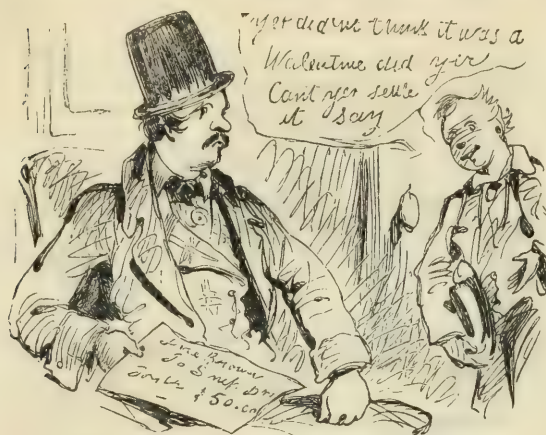 yer did'nt think it was a
Walentine did yer
Cant yer settle
it say
Brown
To Snip Dr
$50.00